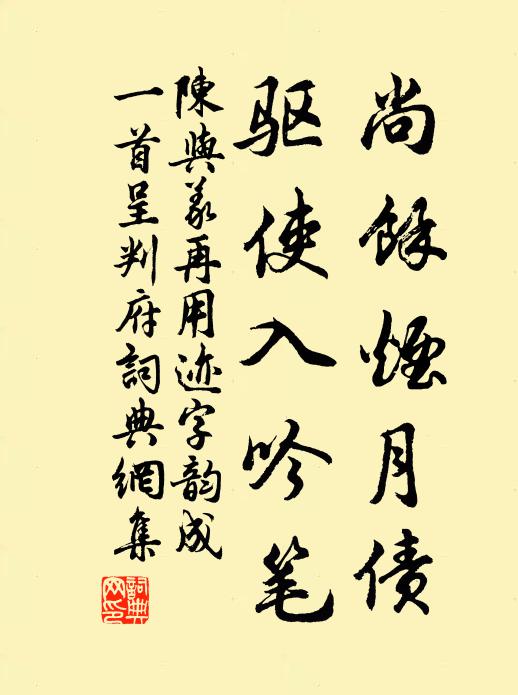 尚餘煙月债
驱使入吟笔
陳與義再用迹字韵成
一首呈判府詞典網集
詞典
网印